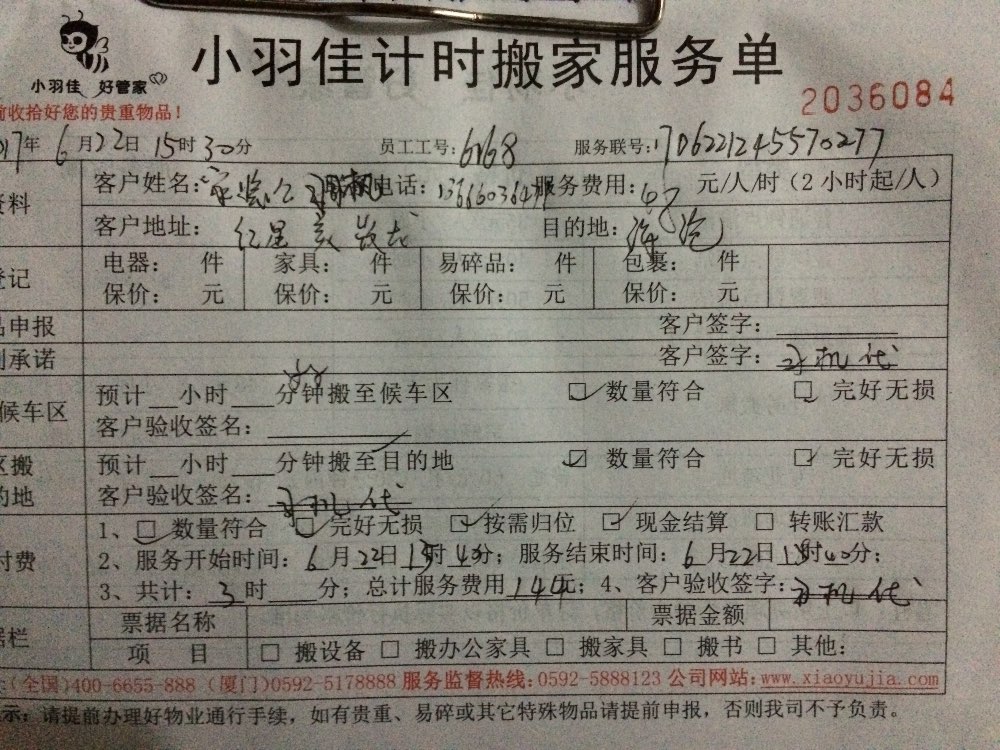 小羽佳 好管家
小羽佳计时搬家服务单
前收拾好您的贵重物品！
2036084
17年6月22日15时30分 员工工号：6168 服务联号：1706221245570277
资料 客户姓名： 电话： 服务费用：48 元/人/时（2小时起/人）
客户地址：红星 目的地：
登记 电器： 件 家具： 件 易碎品： 件 包裹： 件
保价： 元 保价： 元 保价： 元 保价： 元
品申报 客户签字：
承诺 客户签字：司机代
候车区 预计 小时 分钟搬至候车区 数量符合 完好无损
客户验收签名：
区搬 预计 小时 分钟搬至目的地 数量符合 完好无损
的地 客户验收签名：司机代
付费 1、 数量符合 完好无损 按需归位 现金结算 转账汇款
2、服务开始时间：6月22日15时40分；服务结束时间：6月22日18时40分；
3、共计：3时 分；总计服务费用144元；4、客户验收签字：司机代
据栏 票据名称 票据金额
项 目 搬设备 搬办公家具 搬家具 搬书 其他：
(全国)400-6655-888 (厦门)0592-5178888 服务监督热线：0592-5888123 公司网站：www.xiaoyujia.com
示：请提前办理好物业通行手续，如有贵重、易碎或其它特殊物品请提前申报，否则我司不予负责。